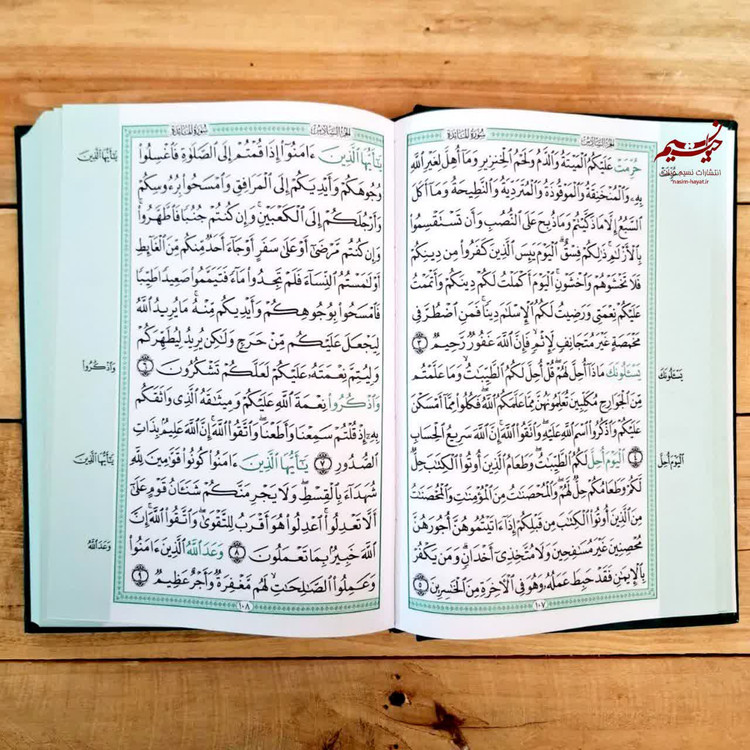 الجزء السادس
سورة المائدة
حُرِّمَتْ عَلَيْكُمُ ٱلْمَيْتَةُ وَٱلدَّمُ وَلَحْمُ ٱلْخِنزِيرِ وَمَآ أُهِلَّ لِغَيْرِ ٱللَّهِ
بِهِۦ وَٱلْمُنْخَنِقَةُ وَٱلْمَوْقُوذَةُ وَٱلْمُتَرَدِّيَةُ وَٱلنَّطِيحَةُ وَمَآ أَكَلَ
ٱلسَّبُعُ إِلَّا مَا ذَكَّيْتُمْ وَمَا ذُبِحَ عَلَى ٱلنُّصُبِ وَأَن تَسْتَقْسِمُوا۟
بِٱلْأَزْلَٰمِ ۚ ذَٰلِكُمْ فِسْقٌ ۗ ٱلْيَوْمَ يَئِسَ ٱلَّذِينَ كَفَرُوا۟ مِن دِينِكُمْ
فَلَا تَخْشَوْهُمْ وَٱخْشَوْنِ ۚ ٱلْيَوْمَ أَكْمَلْتُ لَكُمْ دِينَكُمْ وَأَتْمَمْتُ
عَلَيْكُمْ نِعْمَتِى وَرَضِيتُ لَكُمُ ٱلْإِسْلَٰمَ دِينًا ۚ فَمَنِ ٱضْطُرَّ فِى
مَخْمَصَةٍ غَيْرَ مُتَجَانِفٍ لِّإِثْمٍ ۙ فَإِنَّ ٱللَّهَ غَفُورٌ رَّحِيمٌ ٣
يَسْـَٔلُونَكَ مَاذَآ أُحِلَّ لَهُمْ ۖ قُلْ أُحِلَّ لَكُمُ ٱلطَّيِّبَٰتُ ۙ وَمَا عَلَّمْتُم
مِّنَ ٱلْجَوَارِحِ مُكَلِّبِينَ تُعَلِّمُونَهُنَّ مِمَّا عَلَّمَكُمُ ٱللَّهُ ۖ فَكُلُوا۟ مِمَّآ أَمْسَكْنَ
عَلَيْكُمْ وَٱذْكُرُوا۟ ٱسْمَ ٱللَّهِ عَلَيْهِ ۖ وَٱتَّقُوا۟ ٱللَّهَ ۚ إِنَّ ٱللَّهَ سَرِيعُ ٱلْحِسَابِ
٤ ٱلْيَوْمَ أُحِلَّ لَكُمُ ٱلطَّيِّبَٰتُ ۖ وَطَعَامُ ٱلَّذِينَ أُوتُوا۟ ٱلْكِتَٰبَ حِلٌّ
لَّكُمْ وَطَعَامُكُمْ حِلٌّ لَّهُمْ ۖ وَٱلْمُحْصَنَٰتُ مِنَ ٱلْمُؤْمِنَٰتِ وَٱلْمُحْصَنَٰتُ
مِنَ ٱلَّذِينَ أُوتُوا۟ ٱلْكِتَٰبَ مِن قَبْلِكُمْ إِذَآ ءَاتَيْتُمُوهُنَّ أُجُورَهُنَّ
مُحْصِنِينَ غَيْرَ مُسَٰفِحِينَ وَلَا مُتَّخِذِىٓ أَخْدَانٍ ۗ وَمَن يَكْفُرْ
بِٱلْإِيمَٰنِ فَقَدْ حَبِطَ عَمَلُهُۥ وَهُوَ فِى ٱلْءَاخِرَةِ مِنَ ٱلْخَٰسِرِينَ ٥
١٠٧
يَسْـَٔلُونَكَ
ٱلْيَوْمَ أُحِلَّ
نسیم حیات
انتشارات نسیم حیات
nasim-hayat.ir
الجزء السادس
سورة المائدة
يَٰٓأَيُّهَا ٱلَّذِينَ ءَامَنُوٓا۟ إِذَا قُمْتُمْ إِلَى ٱلصَّلَوٰةِ فَٱغْسِلُوا۟
وُجُوهَكُمْ وَأَيْدِيَكُمْ إِلَى ٱلْمَرَافِقِ وَٱمْسَحُوا۟ بِرُءُوسِكُمْ
وَأَرْجُلَكُمْ إِلَى ٱلْكَعْبَيْنِ ۚ وَإِن كُنتُمْ جُنُبًا فَٱطَّهَّرُوا۟ ۚ
وَإِن كُنتُم مَّرْضَىٰٓ أَوْ عَلَىٰ سَفَرٍ أَوْ جَآءَ أَحَدٌ مِّنكُم مِّنَ ٱلْغَآئِطِ
أَوْ لَٰمَسْتُمُ ٱلنِّسَآءَ فَلَمْ تَجِدُوا۟ مَآءً فَتَيَمَّمُوا۟ صَعِيدًا طَيِّبًا
فَٱمْسَحُوا۟ بِوُجُوهِكُمْ وَأَيْدِيكُم مِّنْهُ ۚ مَا يُرِيدُ ٱللَّهُ
لِيَجْعَلَ عَلَيْكُم مِّنْ حَرَجٍ وَلَٰكِن يُرِيدُ لِيُطَهِّرَكُمْ
وَلِيُتِمَّ نِعْمَتَهُۥ عَلَيْكُمْ لَعَلَّكُمْ تَشْكُرُونَ ٦
وَٱذْكُرُوا۟ نِعْمَةَ ٱللَّهِ عَلَيْكُمْ وَمِيثَٰقَهُ ٱلَّذِى وَاثَقَكُم
بِهِۦٓ إِذْ قُلْتُمْ سَمِعْنَا وَأَطَعْنَا ۖ وَٱتَّقُوا۟ ٱللَّهَ ۚ إِنَّ ٱللَّهَ عَلِيمٌۢ بِذَاتِ
ٱلصُّدُورِ ٧ يَٰٓأَيُّهَا ٱلَّذِينَ ءَامَنُوا۟ كُونُوا۟ قَوَّٰمِينَ لِلَّهِ
شُهَدَآءَ بِٱلْقِسْطِ ۖ وَلَا يَجْرِمَنَّكُمْ شَنَـَٔانُ قَوْمٍ عَلَىٰٓ
أَلَّا تَعْدِلُوا۟ ۚ ٱعْدِلُوا۟ هُوَ أَقْرَبُ لِلتَّقْوَىٰ ۖ وَٱتَّقُوا۟ ٱللَّهَ ۚ إِنَّ
ٱللَّهَ خَبِيرٌۢ بِمَا تَعْمَلُونَ ٨ وَعَدَ ٱللَّهُ ٱلَّذِينَ ءَامَنُوا۟
وَعَمِلُوا۟ ٱلصَّٰلِحَٰتِ ۙ لَهُم مَّغْفِرَةٌ وَأَجْرٌ عَظِيمٌ ٩
١٠٨
يَٰٓأَيُّهَا ٱلَّذِينَ
وَٱذْكُرُوا۟
يَٰٓأَيُّهَا ٱلَّذِينَ
وَعَدَ ٱللَّهُ